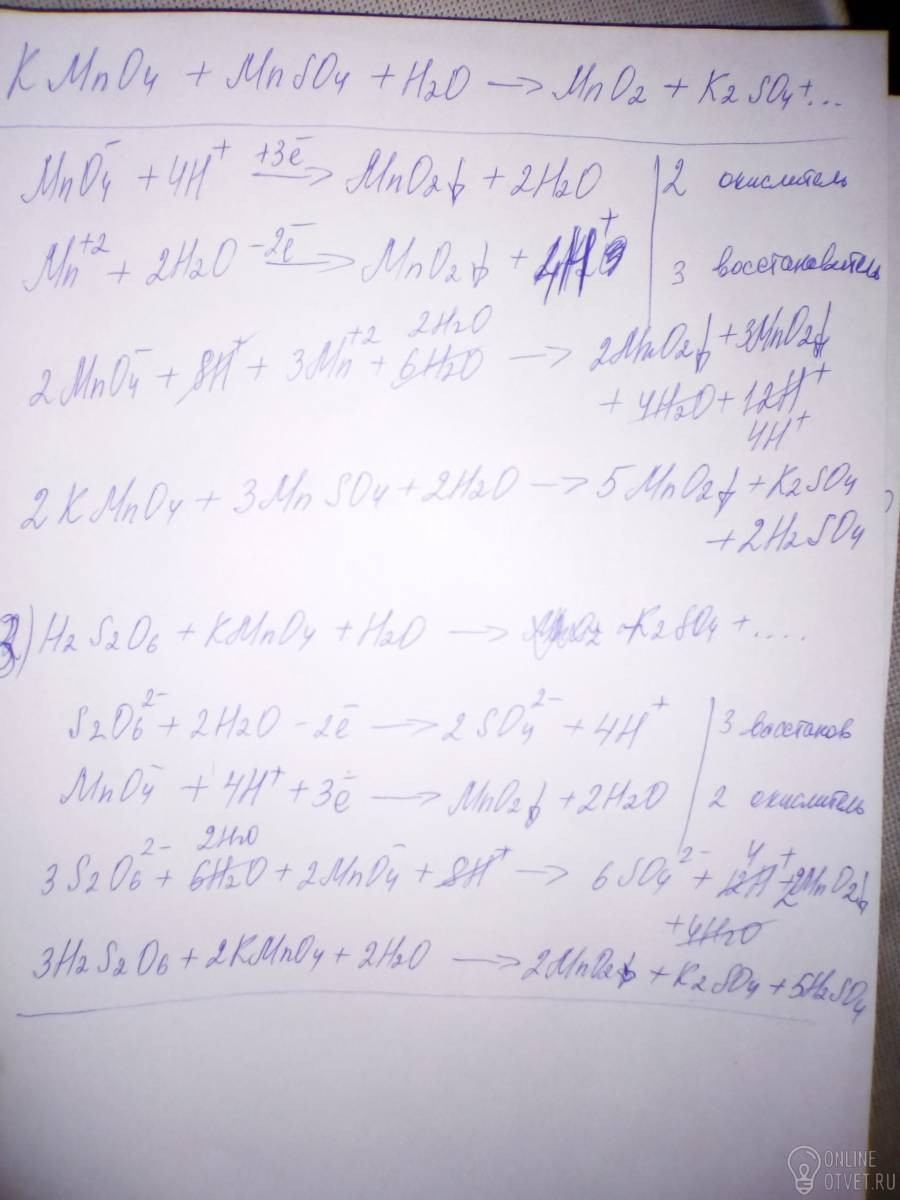 KMnO4 + MnSO4 + H2O → MnO2 + K2SO4 + ...
MnO4⁻ + 4H⁺ +3ē → MnO2↓ + 2H2O | 2 окислитель
Mn⁺² + 2H2O -2ē → MnO2↓ + 4H⁺ | 3 восстановитель
2H2O
2MnO4⁻ + 8H⁺ + 3Mn⁺² + 6H2O → 2MnO2↓ + 3MnO2↓
+ 4H2O + 12H⁺
4H⁺
2KMnO4 + 3MnSO4 + 2H2O → 5MnO2↓ + K2SO4
+ 2H2SO4
) H2S2O6 + KMnO4 + H2O → K2SO4 + ....
S2O6²⁻ + 2H2O - 2ē → 2SO4²⁻ + 4H⁺ | 3 восстанов
MnO4⁻ + 4H⁺ + 3ē → MnO2↓ + 2H2O | 2 окислитель
2H2O 4
3S2O6²⁻ + 6H2O + 2MnO4⁻ + 8H⁺ → 6SO4²⁻ + 12H⁺ + 2MnO2↓
+ 4H2O
3H2S2O6 + 2KMnO4 + 2H2O → 2MnO2↓ + K2SO4 + 5H2SO4
ONLINE
OTVET.RU